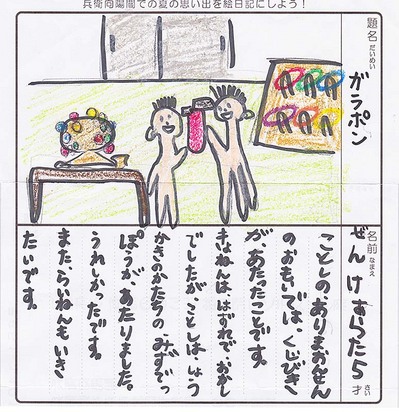 兵衛向陽閣での夏の思い出を絵日記にしよう！
題名 だいめい
ガラポン
名前 なまえ
ぜんけ あらた 5 才 さい
ことしの、ありまおんせん
のおもいでは、くじびき
が、あたったことです。
きょねんは、はずれで、おかし
でしたが、ことしは、しょう
かきのかたちの、みずでっ
ぽうが、あたりました。
うれしかったです。
また、らいねんも、いき
たいです。